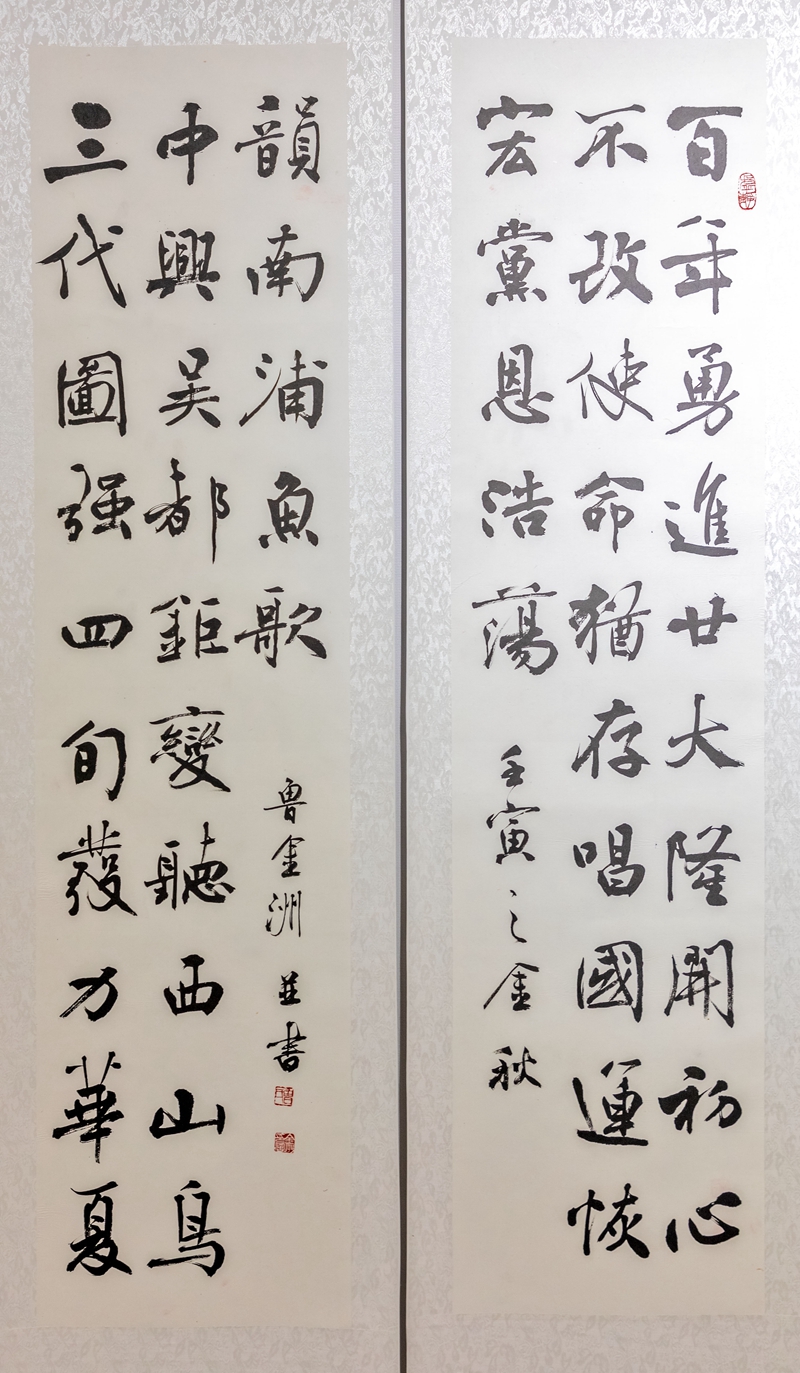 百年勇進廿大隆開初心
不改使命猶存唱國運恢
宏黨恩浩蕩
壬寅之金秋
三代圖强四旬發力華夏
中興吴都鉅變聽西山鳥
韻南浦魚歌
魯金洲 並書